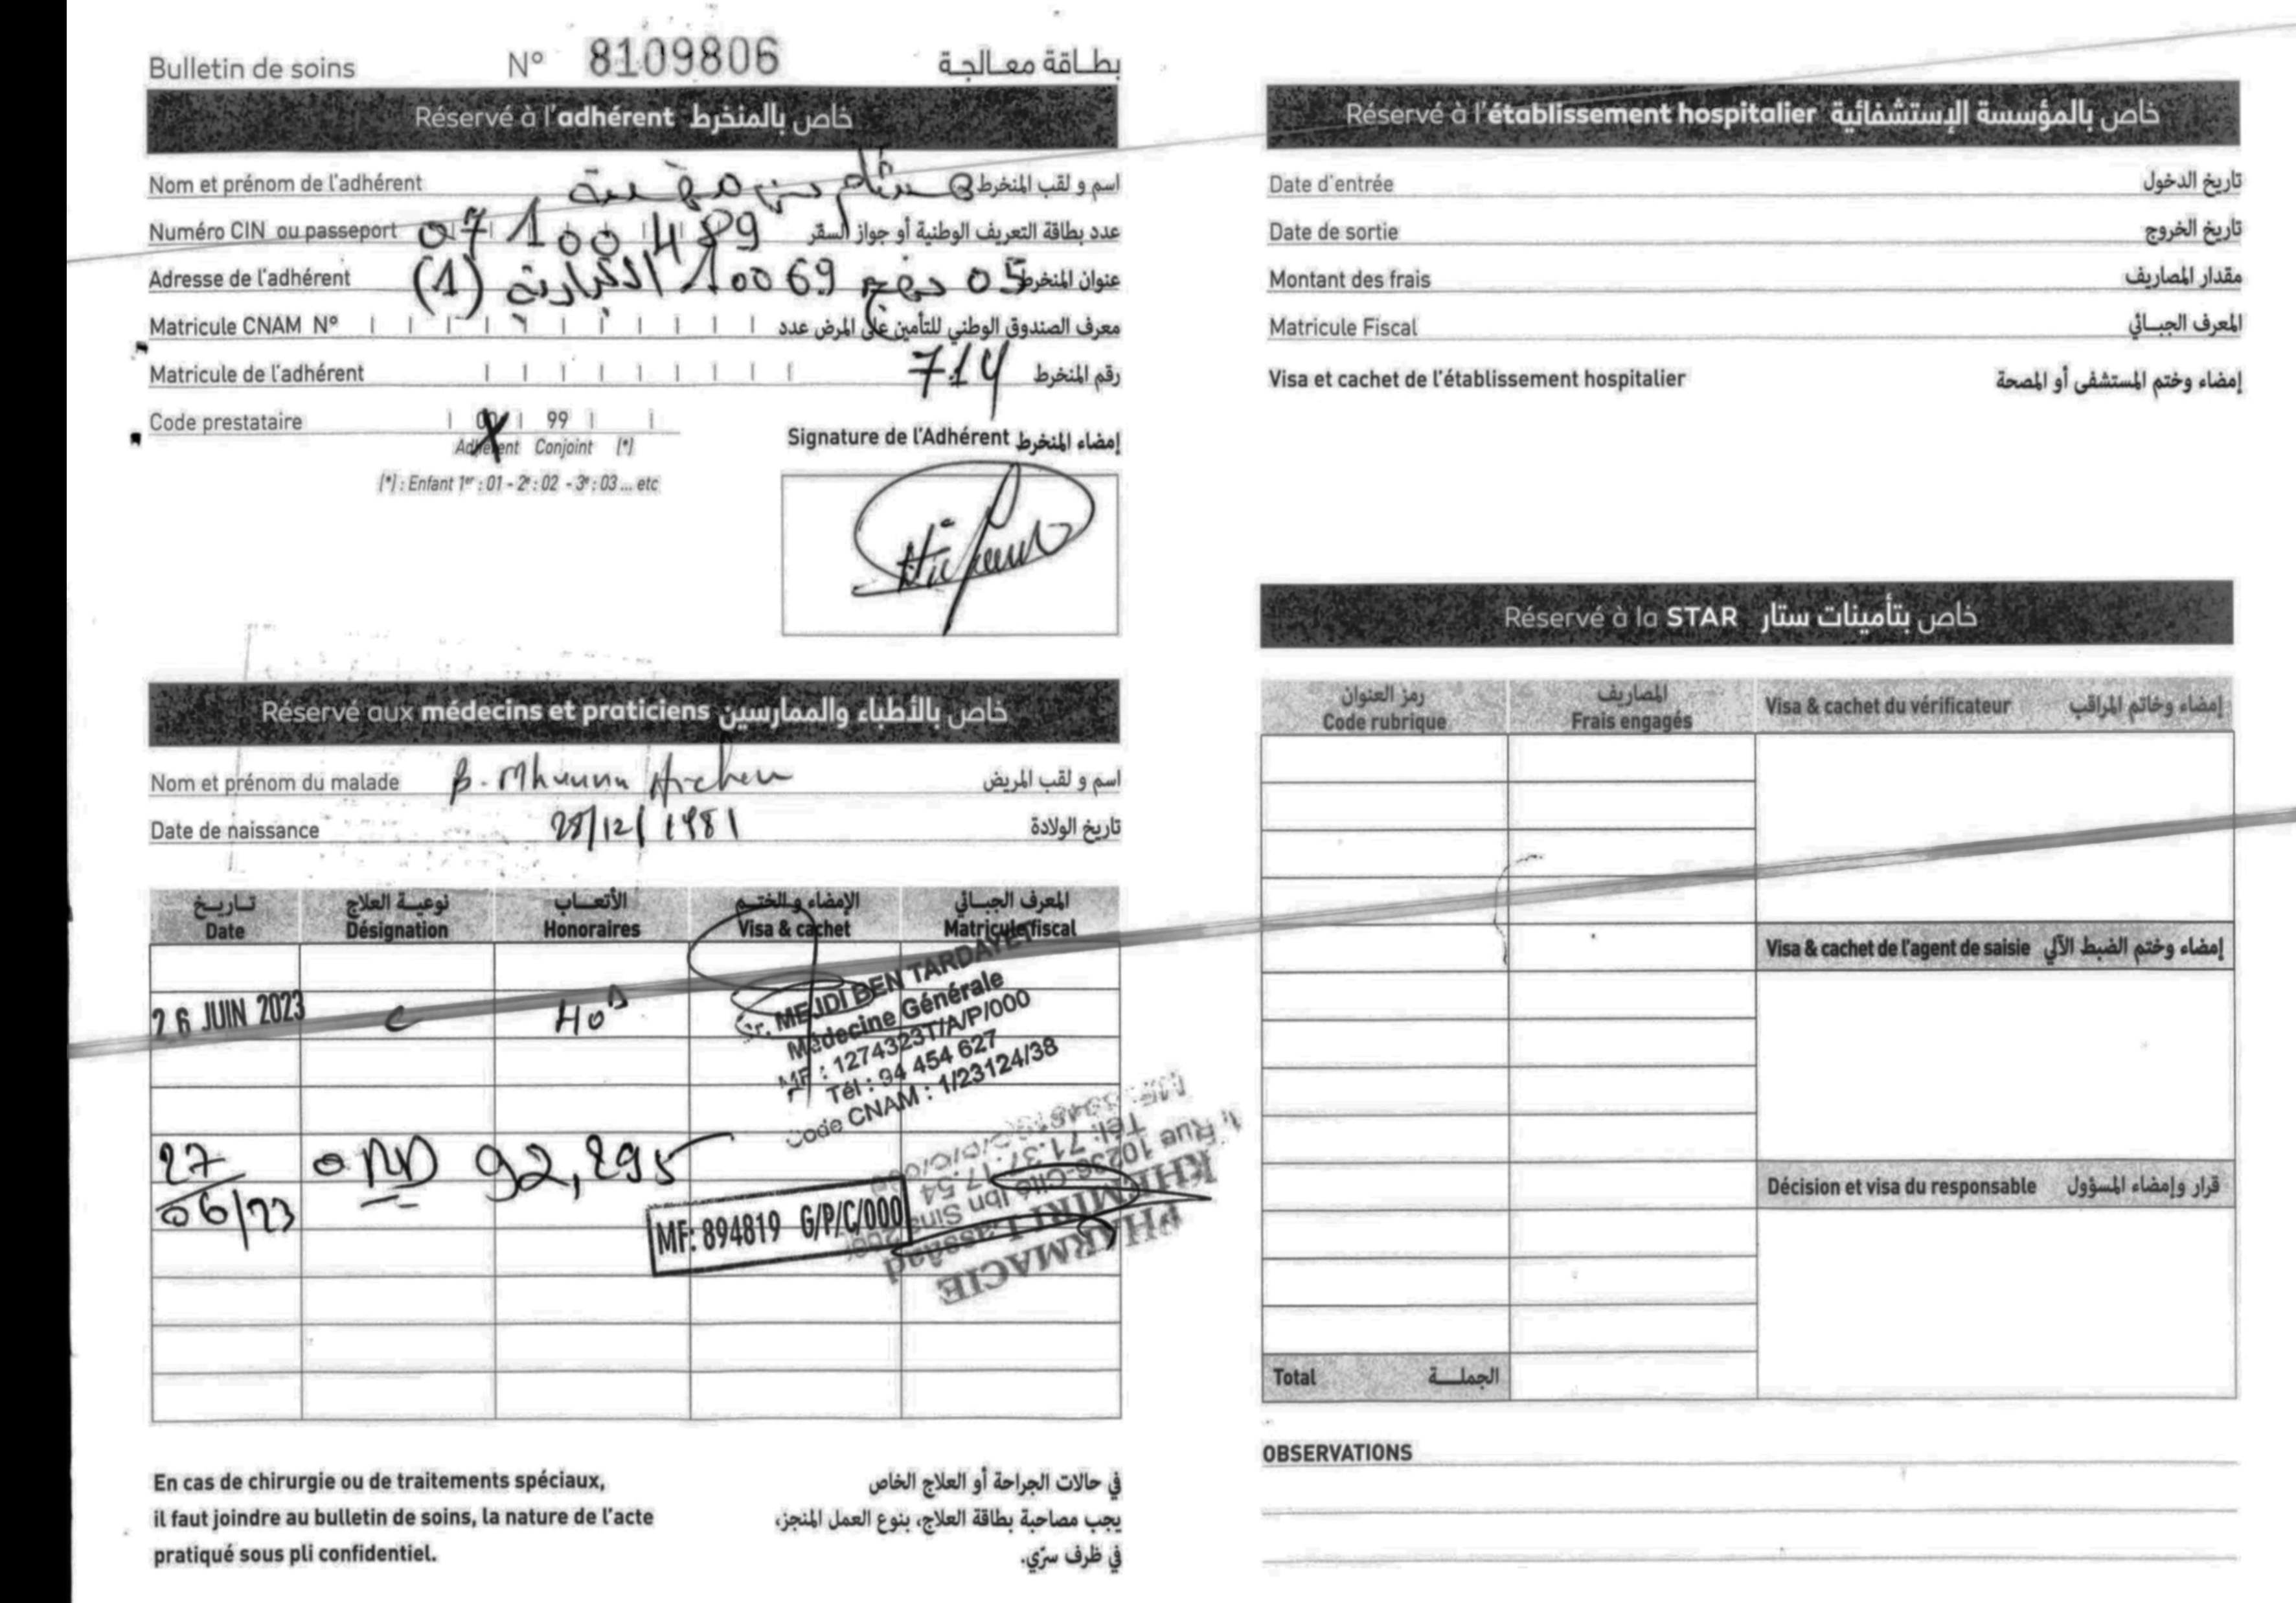 Bulletin de soins N° 8109806 بطاقة معالجة
Réservé à l'adhérent خاص بالمنخرط
Nom et prénom de l'adhérent هشام بن مهنية اسم و لقب المنخرط
Numéro CIN ou passeport 07100489 عدد بطاقة التعريف الوطنية أو جواز السفر
Adresse de l'adhérent 05 نهج 10069 الكبارية (1) عنوان المنخرط
Matricule CNAM N° معرف الصندوق الوطني للتأمين على المرض عدد
Matricule de l'adhérent 714 رقم المنخرط
Code prestataire 00 99
Adhérent Conjoint (*)
(*) : Enfant 1er : 01 - 2e : 02 - 3e : 03 ... etc
Signature de l'Adhérent إمضاء المنخرط
Réservé aux médecins et praticiens خاص بالأطباء والممارسين
Nom et prénom du malade اسم و لقب المريض
Date de naissance 28/12/1981 تاريخ الولادة
تاريخ نوعية العلاج الأتعاب الإمضاء والختم المعرف الجبائي
Date Désignation Honoraires Visa & cachet Matricule fiscal
26 JUIN 2023 C 40D
Dr. MEJDI BEN TARDAYET
Médecine Générale
MF : 1274323T/A/P/000
Tél : 94 454 627
Code CNAM : 1/23124/38
27/06/23 ORD 92,295
MF: 894819 G/P/C/000
PHARMACIE
KHEMIRI Lassâad
1, Rue 10236-Cité Ibn Sina
En cas de chirurgie ou de traitements spéciaux,
il faut joindre au bulletin de soins, la nature de l'acte
pratiqué sous pli confidentiel.
في حالات الجراحة أو العلاج الخاص
يجب مصاحبة بطاقة العلاج، بنوع العمل المنجز،
في ظرف سرّي.
Réservé à l'établissement hospitalier خاص بالمؤسسة الإستشفائية
Date d'entrée تاريخ الدخول
Date de sortie تاريخ الخروج
Montant des frais مقدار المصاريف
Matricule Fiscal المعرف الجبائي
Visa et cachet de l'établissement hospitalier إمضاء وختم المستشفى أو المصحة
Réservé à la STAR خاص بتأمينات ستار
رمز العنوان المصاريف
Code rubrique Frais engagés Visa & cachet du vérificateur إمضاء وخاتم المراقب
Visa & cachet de l'agent de saisie إمضاء وختم الضبط الآلي
Décision et visa du responsable قرار وإمضاء المسؤول
Total الجملة
OBSERVATIONS